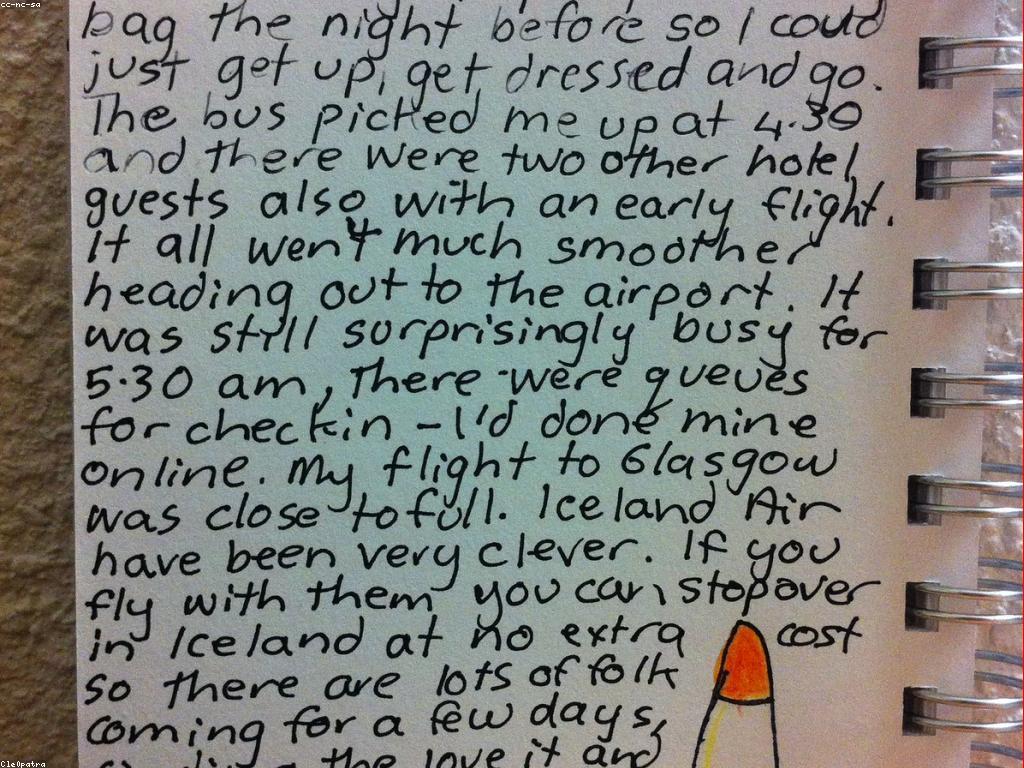 cc-nc-sa
bag the night before so I could
just get up, get dressed and go.
The bus picked me up at 4.30
and there were two other hotel
guests also with an early flight.
It all went much smoother
heading out to the airport. It
was still surprisingly busy for
5.30 am, there were queues
for checkin - I'd done mine
online. My flight to Glasgow
was close to full. Iceland Air
have been very clever. If you
fly with them you can stopover
in Iceland at no extra cost
so there are lots of folk
coming for a few days,
the love it and
Cle0patra